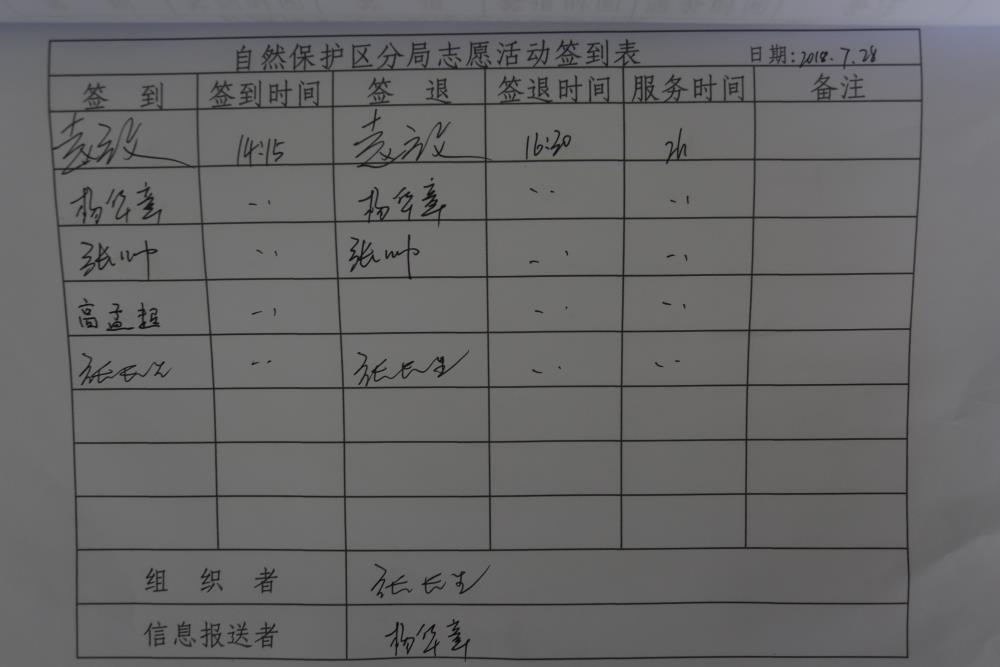 自然保护区分局志愿活动签到表 日期:2018.7.28
签到 签到时间 签退 签退时间 服务时间 备注
袁毅 14:15 袁毅 16:30 2h
杨华章 -、 杨华章 -、 -、
张帅 -、 张帅 -、 -、
高孟超 -、 -、 -、
张长生 -、 张长生 -、 -、
组织者 张长生
信息报送者 杨华章